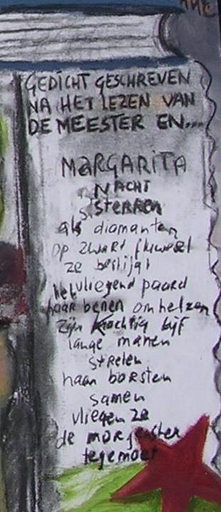 GEDICHT GESCHREVEN
NA HET LEZEN VAN
DE MEESTER EN...
MARGARITA
NACHT
STERREN
als diamanten
op zwart fluweel
ze bestijgt
het vliegend paard
haar benen omhelzen
zijn krachtig lijf
lange manen
strelen
haar borsten
samen
vliegen ze
de morgenster
tegemoet